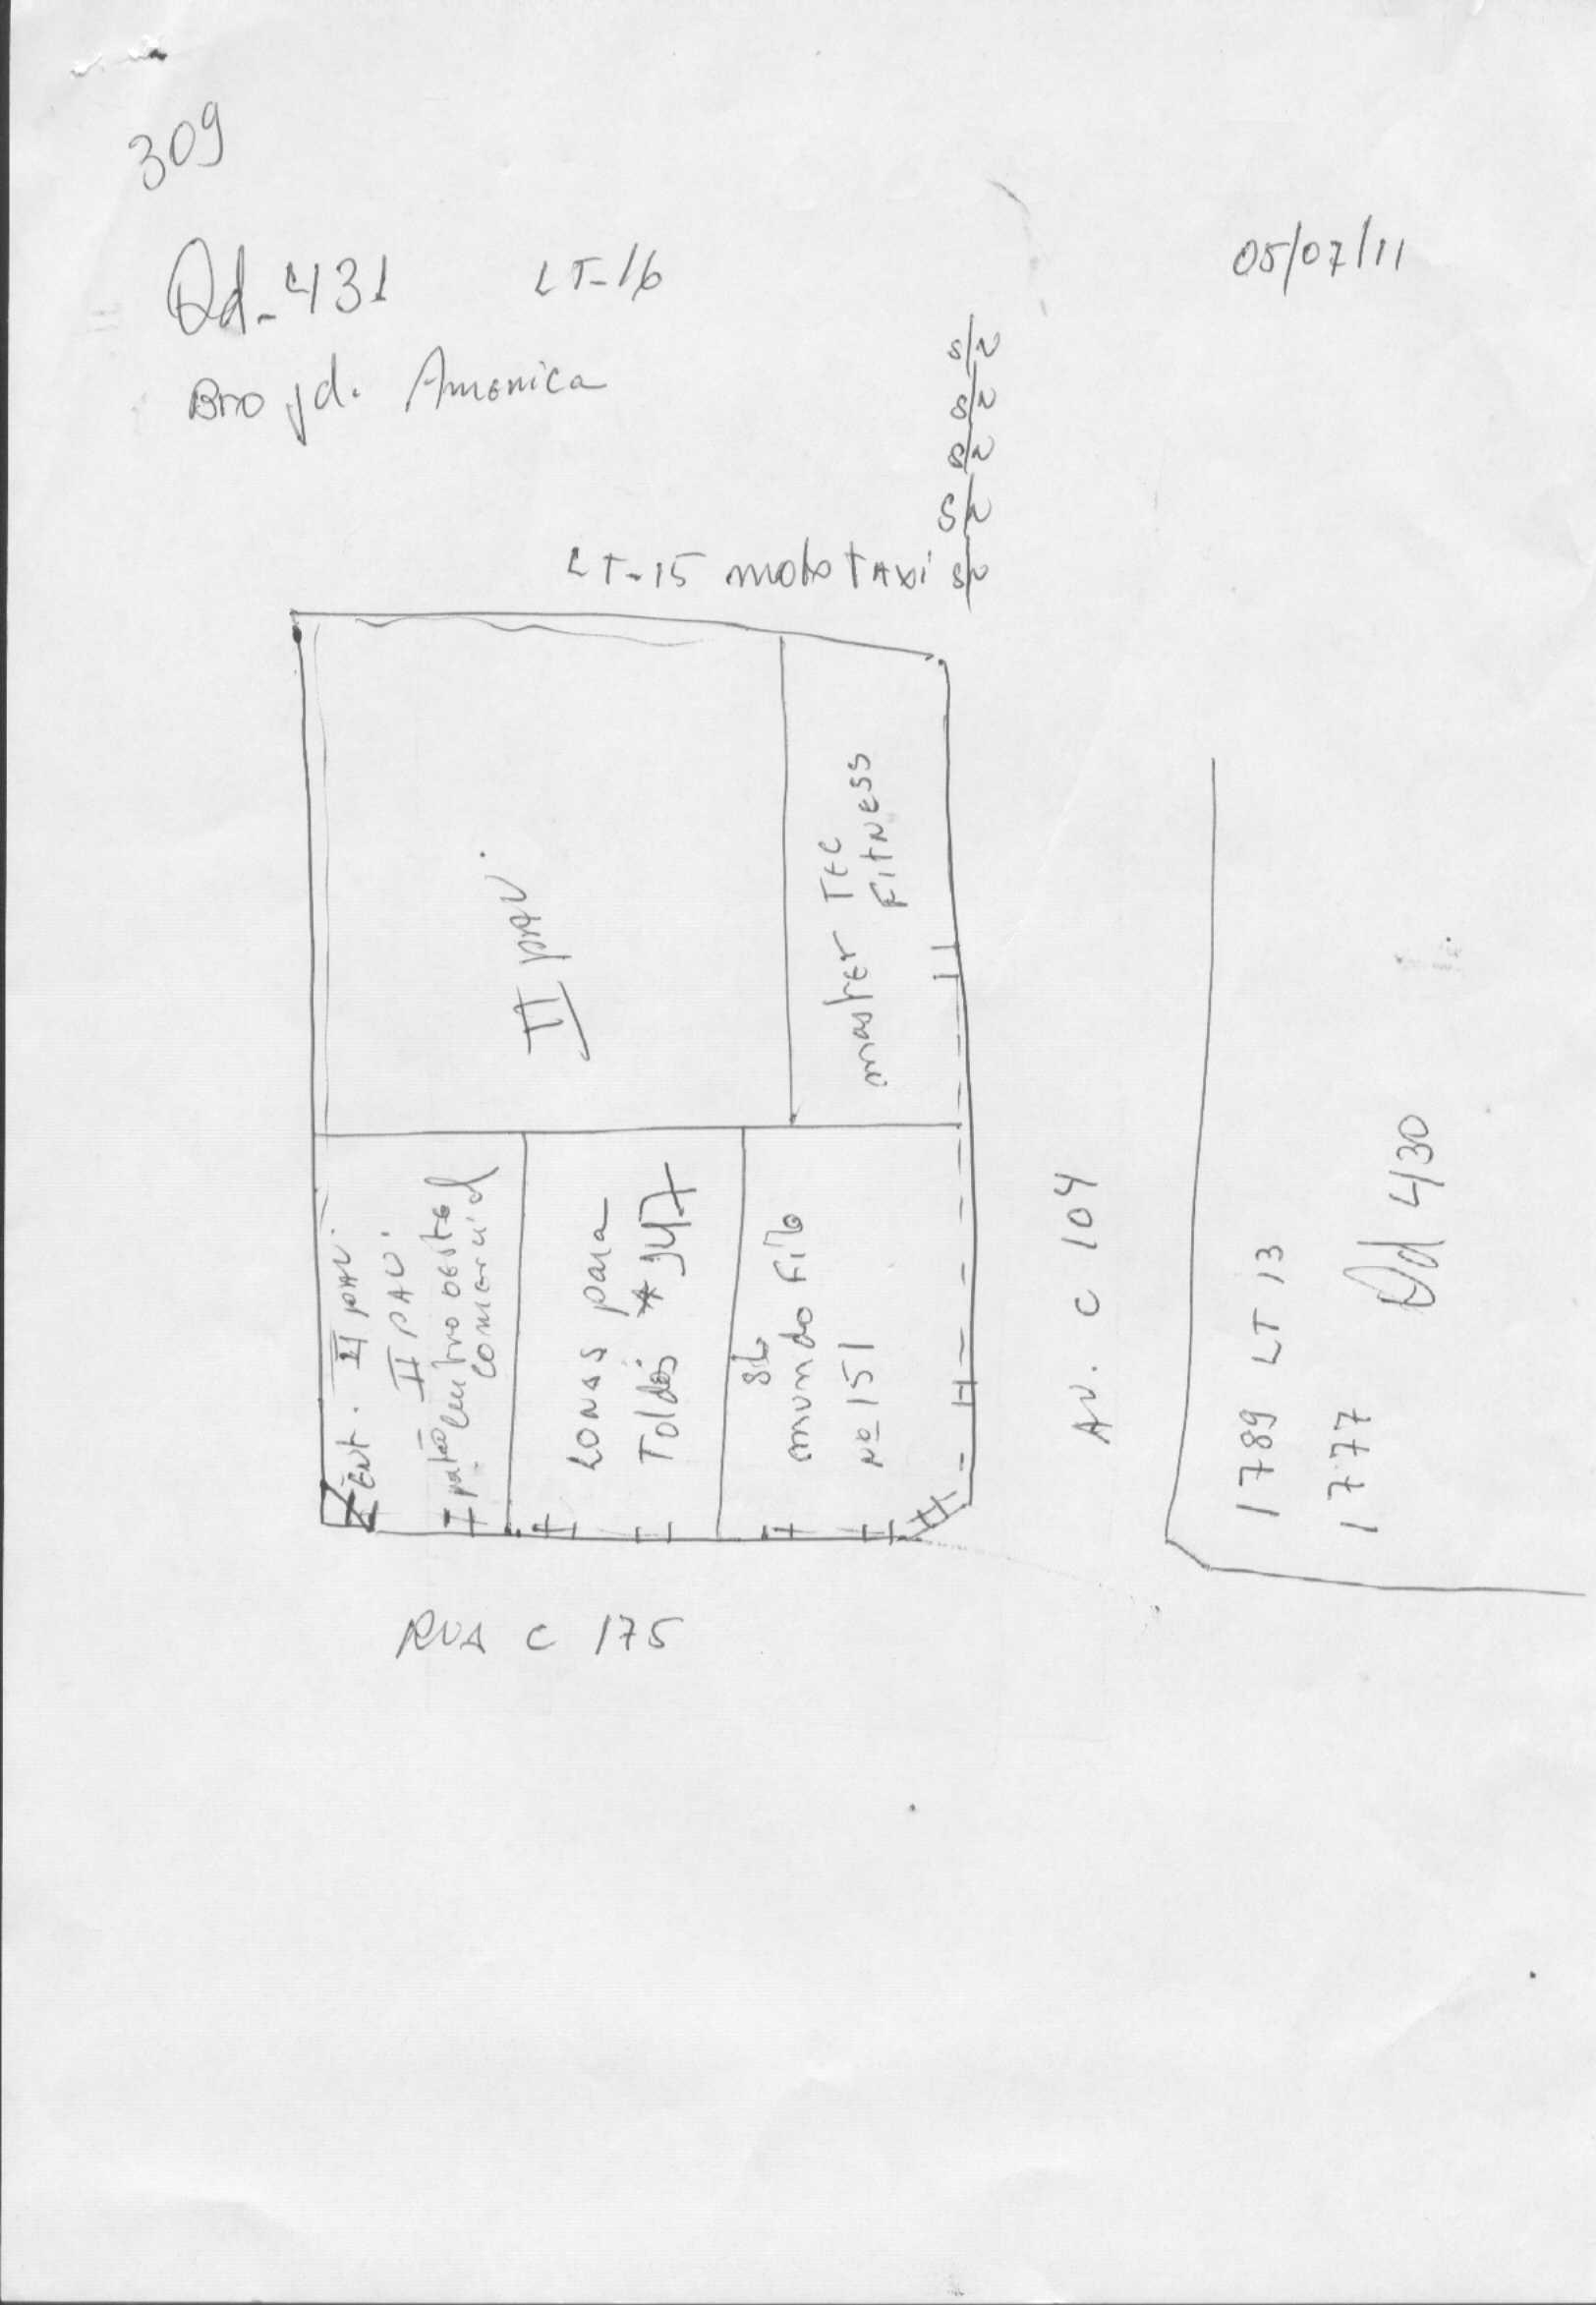 309
Qd-431 LT-16
05/07/11
Bro jd. America
S/N
S/N
S/N
S/N
LT-15 moto TAXI S/N
II PAV.
master TEC
FITNESS
ENT. II PAV.
II PAV.
centro oeste
comercial
LONAS para
Toldos
mundo Filo
Nº 151
AV. C 104
1789 LT 13
1777
Qd 430
RUA C 175